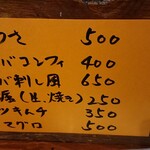 さ 500
バコンフィ 400
バ刺し風 650
(生、焼き) 250
キムチ 350
マグロ 500